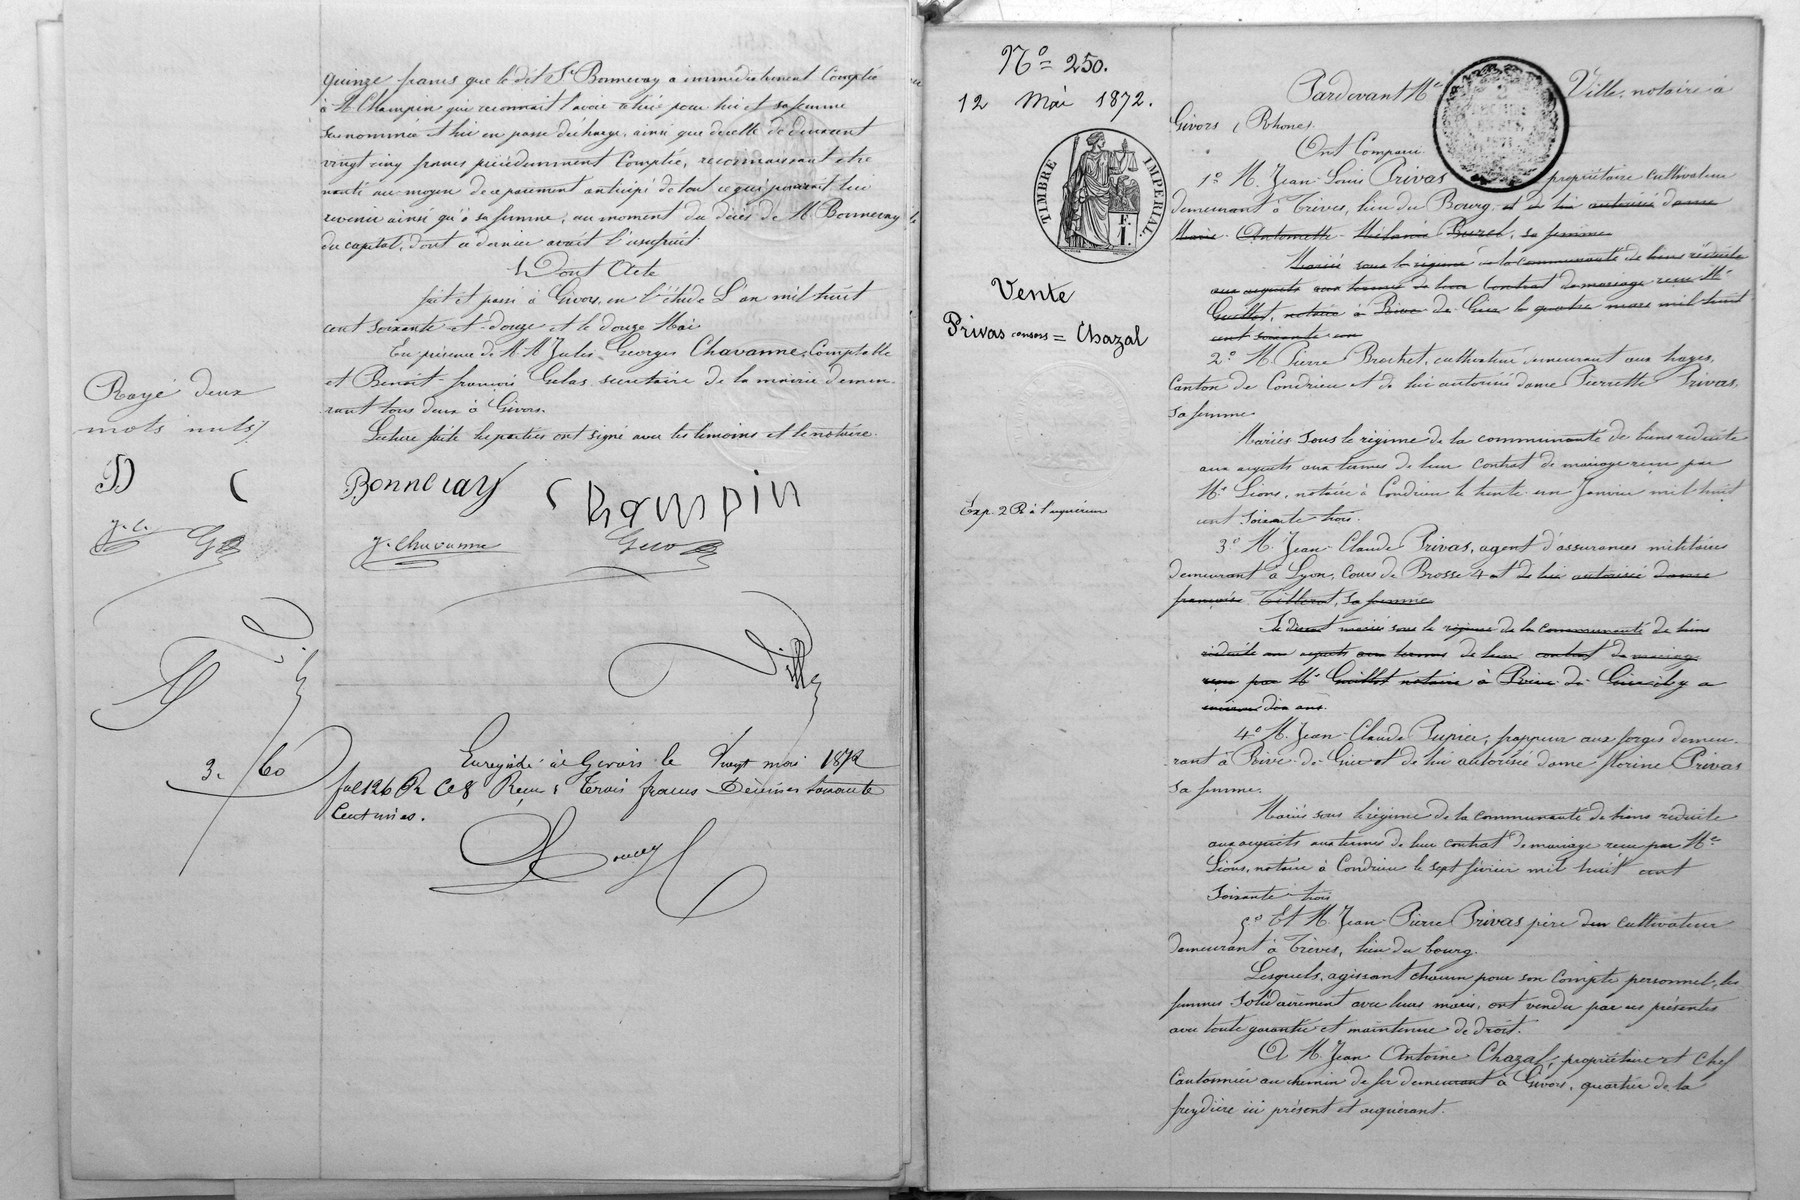 quinze francs que le dit Sr Bonnevay a immédiatement Comptée
à M. Champin qui reconnait l'avoir retirée pour lui et sa femme
susnommée et lui en passe décharge, ainsi que de celle de deux cent
vingt cinq francs précédemment Comptée, reconnaissant etre
nanti au moyen de ce paiement anticipé de tout ce qui pourrait lui
revenir ainsi qu'à sa femme, au moment du décès de M. Bonnevay
du capital, dont ce dernier avait l'usufruit.
Dont Acte
fait et passé à Givors, en l'étude L'an mil huit
cent soixante et douze et le douze Mai
En présence de M.M. Jules Georges Chavanne, Comptable
et Benoit françois Gelas secrétaire de la mairie demeu-
rant tous deux à Givors.
Lecture faite les parties ont signé avec les témoins et le notaire.
Rayé deux
mots nuls
Bonnevay Champin
J. Chavanne
Ville
3. 60
Enregistré à Givors le Vingt mai 1872
fol 126 R Ce 8 Reçu : Trois francs Décimes soixante
Centimes.
No 250.
12 Mai 1872.
TIMBRE IMPERIAL
F. I.
Vente
Privas consors = Chazal
Exp. 2 R à l'acquéreur
Pardevant Me Ville, notaire à
Givors (Rhône).
Ont Comparu
1o M. Jean Louis Privas propriétaire cultivateur
demeurant à Trèves, lieu du Bourg, et de lui autorisée dame
Marie Antoinette Mélanie, sa femme
Mariés sous le régime de la communauté de biens réduite
aux acquets aux termes de leur Contrat de mariage reçu Me
Guillot, notaire à Rive de Gier le quatre mars mil huit
cent soixante un
2o M. Pierre Brochet, cultivateur demeurant aux hayes,
Canton de Condrieu et de lui autorisée dame Pierrette Privas,
sa femme.
Mariés sous le régime de la communauté de biens réduite
aux acquets aux termes de leur contrat de mariage reçu par
Me Lions, notaire à Condrieu le trente un Janvier mil huit
cent soixante trois.
3o M. Jean-Claude Privas, agent d'assurances militaires
demeurant à Lyon, Cours de Brosse 4 et de lui autorisée dame
françoise, sa femme
Se disant mariés sous le régime de la communauté de biens
réduite aux acquets aux termes de leur contrat de mariage
reçu par Me Guillot notaire à Rive de Gier il y a
environ dix ans.
4o M. Jean-Claude Pupier, frappeur aux forges demeu-
rant à Rive-de-Gier et de lui autorisée dame florine Privas
sa femme.
Mariés sous le régime de la communauté de biens réduite
aux acquets aux termes de leur contrat de mariage reçu par Me
Lions, notaire à Condrieu le sept février mil huit cent
soixante trois
5o Et M. Jean-Pierre Privas père cultivateur
demeurant à Trèves, lieu du bourg.
Lesquels, agissant chacun pour son Compte personnel, les
femmes solidairement avec leurs maris, ont vendu par ces présentes
avec toute garantie et maintenue de droit.
A M. Jean Antoine Chazal, propriétaire et Chef
Cantonnier au chemin de fer demeurant à Givors, quartier de la
freydière ici présent et acquérant.